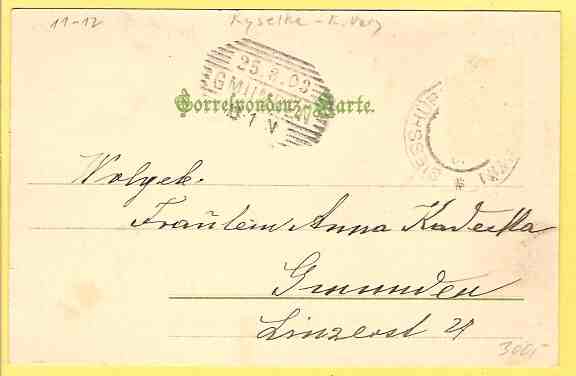 11-12 Kyselka - K. Vary
25.8.03
GMUNDEN
1 V
Correspondenz-Karte.
GIESSHÜB
Wolgeb.
Fräulein Anna Kadecka
Gmunden
Linzerst 21
300,-